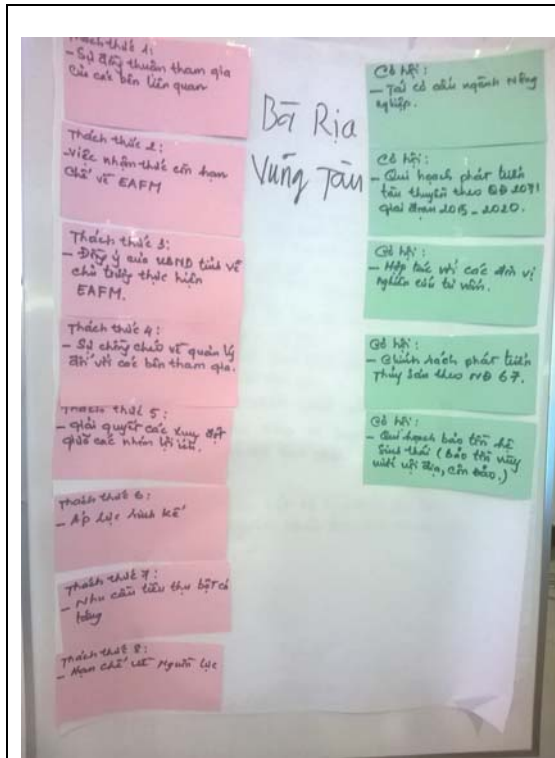 Thách thức 1:
- Sự đồng thuận tham gia
của các bên liên quan
Thách thức 2:
- Việc nhận thức còn hạn
chế về EAFM
Thách thức 3:
- Đồng ý của UBND tỉnh về
chủ trương thực hiện
EAFM.
Thách thức 4:
- Sự chồng chéo về quản lý
đối với các bên tham gia.
Thách thức 5:
- giải quyết các xung đột
giữa các nhóm lợi ích.
Thách thức 6:
- Áp lực sinh kế
Thách thức 7:
- Nhu cầu tiêu thụ bột cá
tăng
Thách thức 8:
- Hạn chế về Nguồn lực
Bà Rịa
Vũng Tàu
Cơ hội:
- Tái cơ cấu ngành Nông
nghiệp.
Cơ hội:
- Qui hoạch phát triển
tàu thuyền theo QĐ
giai đoạn 2015-2020.
Cơ hội:
- Hợp tác với các đơn vị
nghiên cứu tư vấn.
Cơ hội:
- Chính sách phát triển
Thủy sản theo NĐ 67.
Cơ hội:
- Qui hoạch bảo tồn hệ
sinh thái (Bảo tồn vùng
nước nội địa, Côn Đảo.)